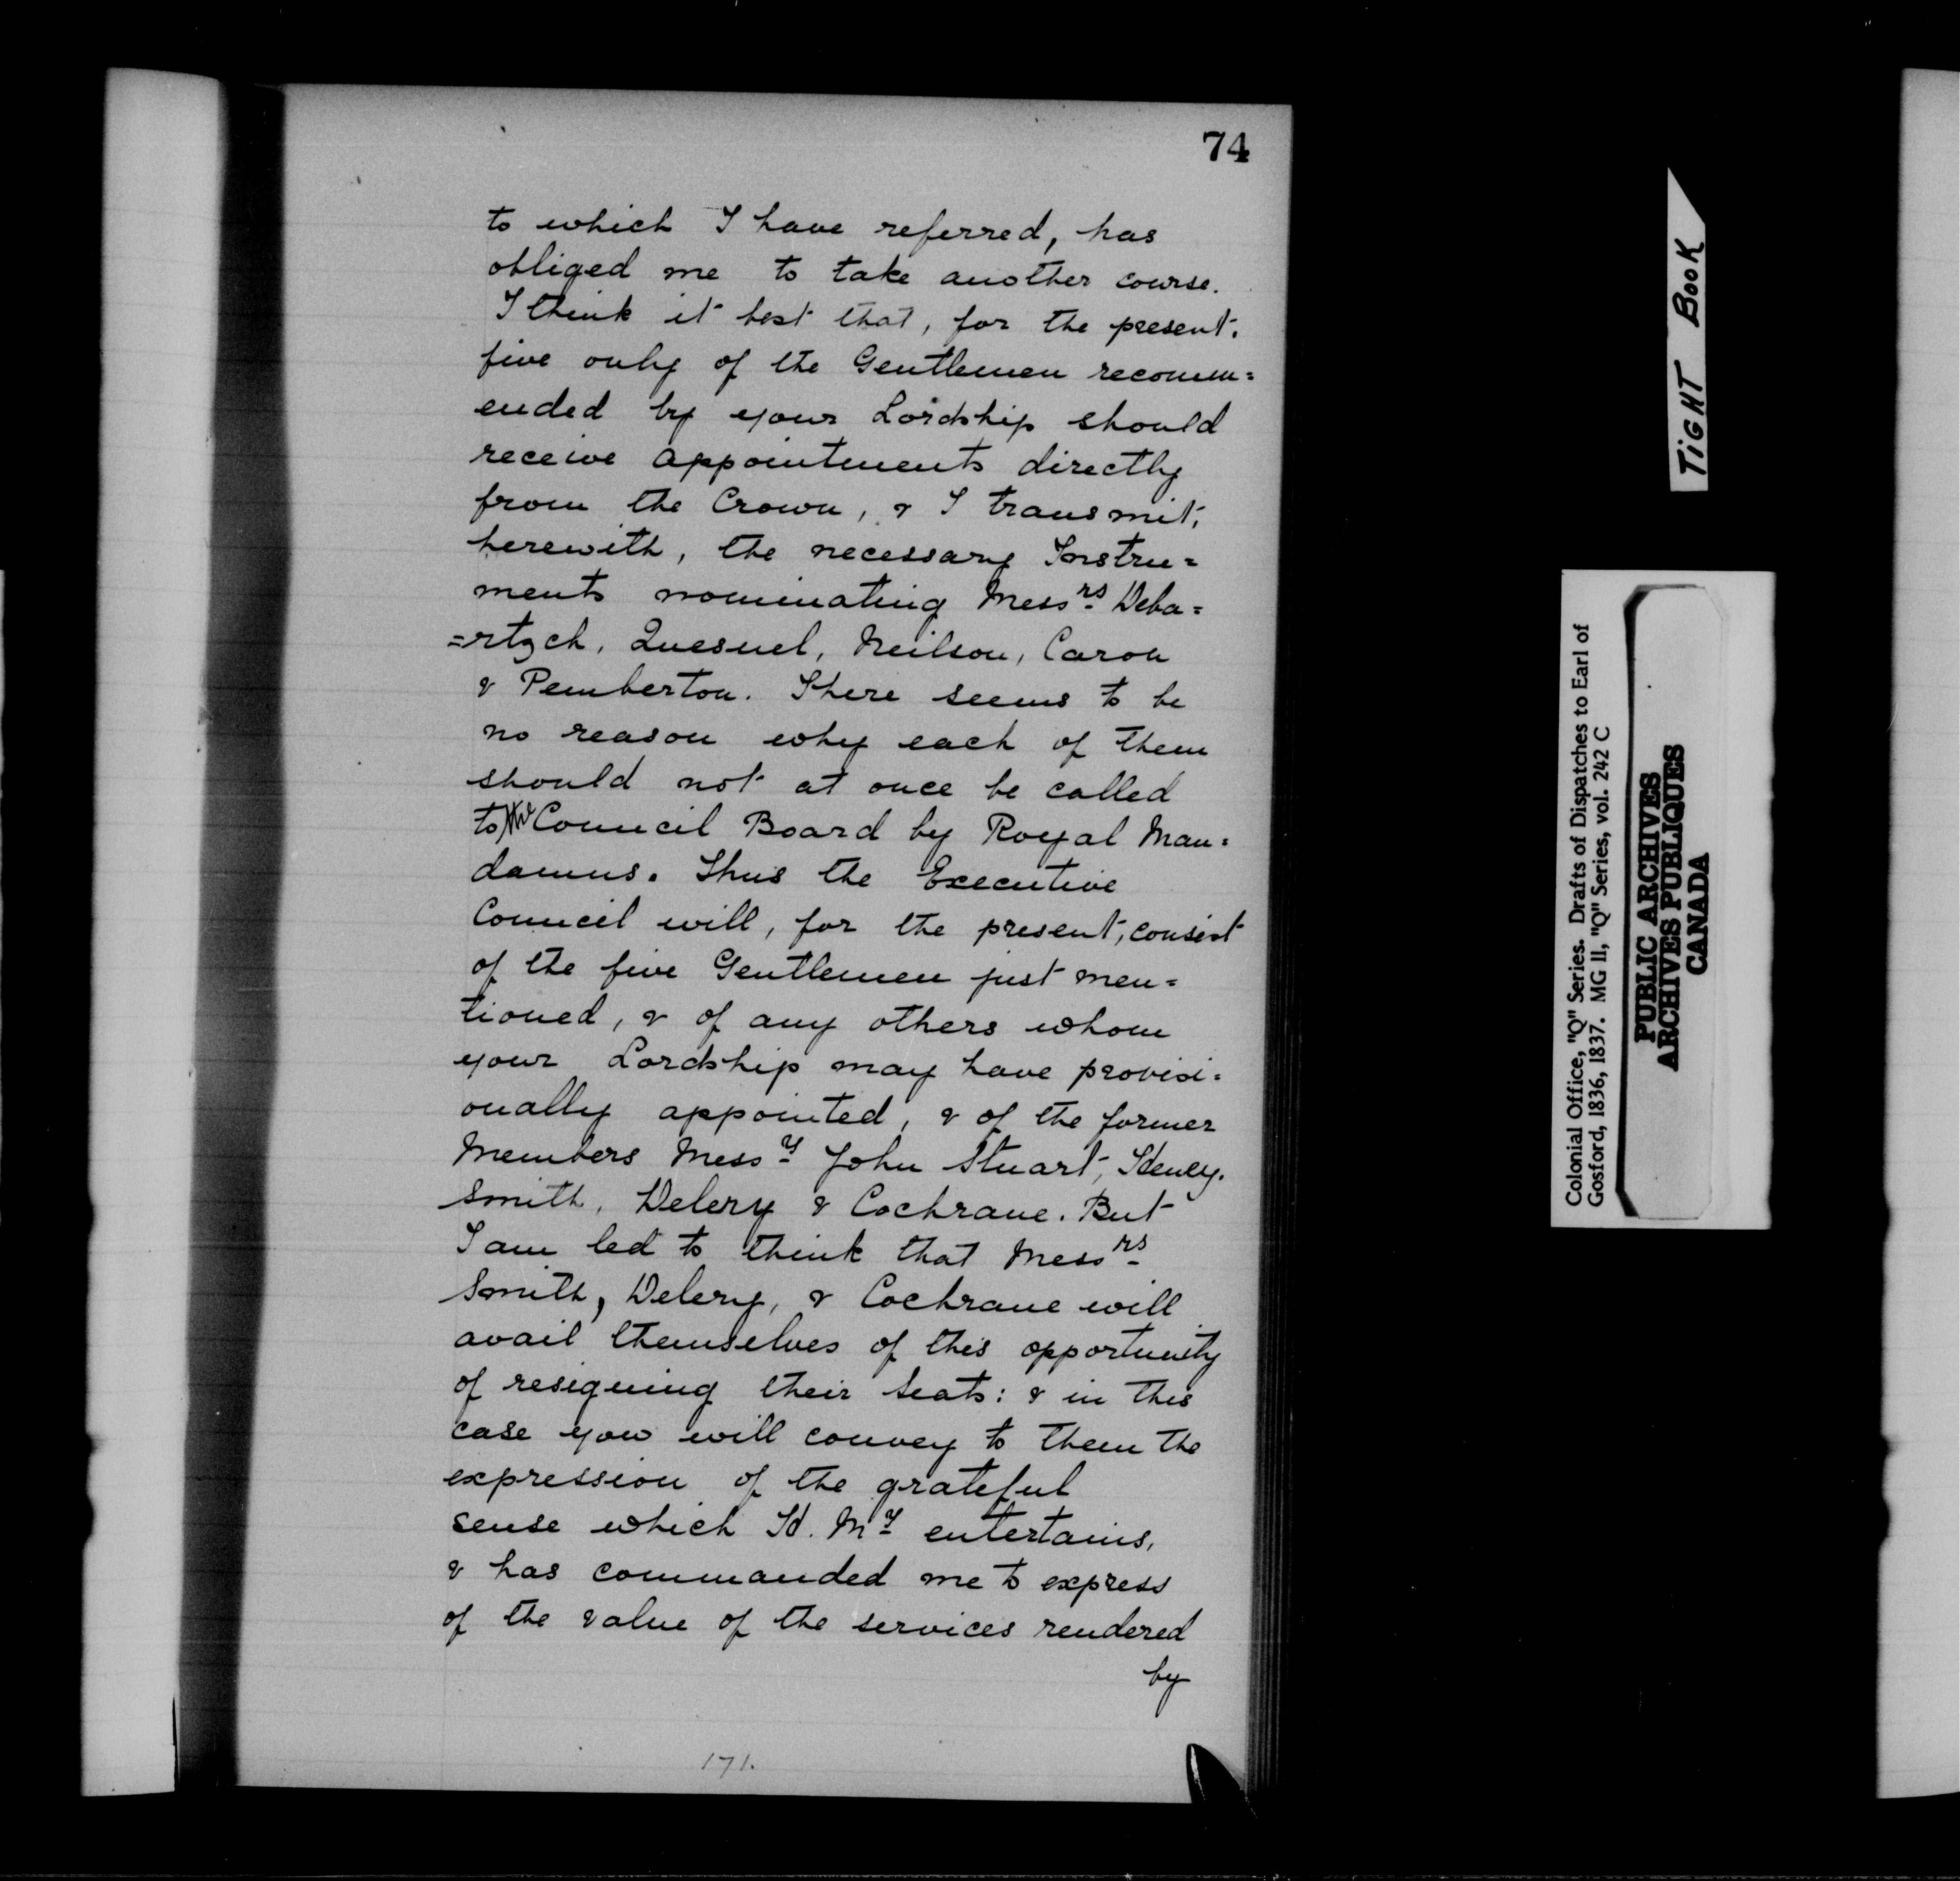 74
to which I have referred, has
obliged me to take another course.
I think it best that, for the present,
five only of the Gentlemen recomm=
ended by your Lordship should
receive appointments directly
from the Crown, & I transmit,
herewith, the necessary Instru=
ments nominating Messrs Deba=
=rtzch, Quesnel, Neilson, Caron
& Pemberton. There seems to be
no reason why each of them
should not at once be called
to the Council Board by Royal Man=
damus. Thus the Executive
Council will, for the present, consist
of the five Gentlemen just men=
tioned, & of any others whom
your Lordship may have provisi=
onally appointed, & of the former
Members Messrs John Stuart, Heney,
Smith, Delery & Cochrane. But
I am led to think that Messrs
Smith, Delery, & Cochrane will
avail themselves of this opportunity
of resigning their seats: & in this
case you will convey to them the
expression of the grateful
sense which H. My entertains,
& has commanded me to express
of the value of the services rendered
by
171.
TIGHT BOOK
Colonial Office, "Q" Series. Drafts of Dispatches to Earl of
Gosford, 1836, 1837. MG 11, "Q" Series, vol. 242 C
PUBLIC ARCHIVES
ARCHIVES PUBLIQUES
CANADA